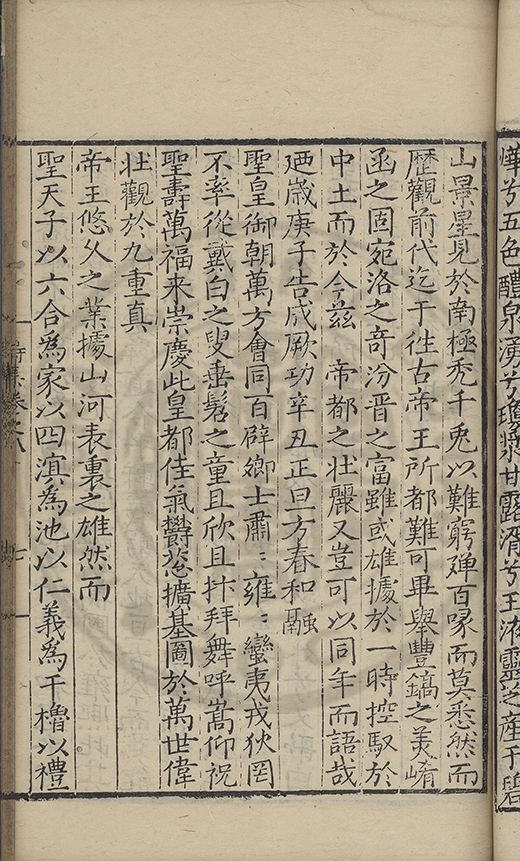 燁兮五色醴泉湧兮瓊漿甘露湑兮玉液靈芝產于碧
山景星見於南極禿千兎以難窮殫百喙而莫悉然而
歷觀前代迄于往古帝王所都難可畢舉豐鎬之美崤
函之固宛洛之奇汾晉之富雖或雄據於一時控馭於
中土而於今兹 帝都之壯麗又豈可以同年而語哉
廼歲庚子告成厥功辛丑正旦方春和融
聖皇御朝萬方會同百辟卿士肅﹕雍﹕蠻夷戎狄罔
不率從戴白之叟垂髫之童且欣且抃拜舞呼嵩仰祝
聖壽萬福来崇慶此皇都佳氣鬱葱擴基圖於萬世偉
壯觀於九重真
帝王悠久之業據山河表裏之雄然而
聖天子以六合為家以四溟為池以仁義為干櫓以禮
詩集卷之八
七